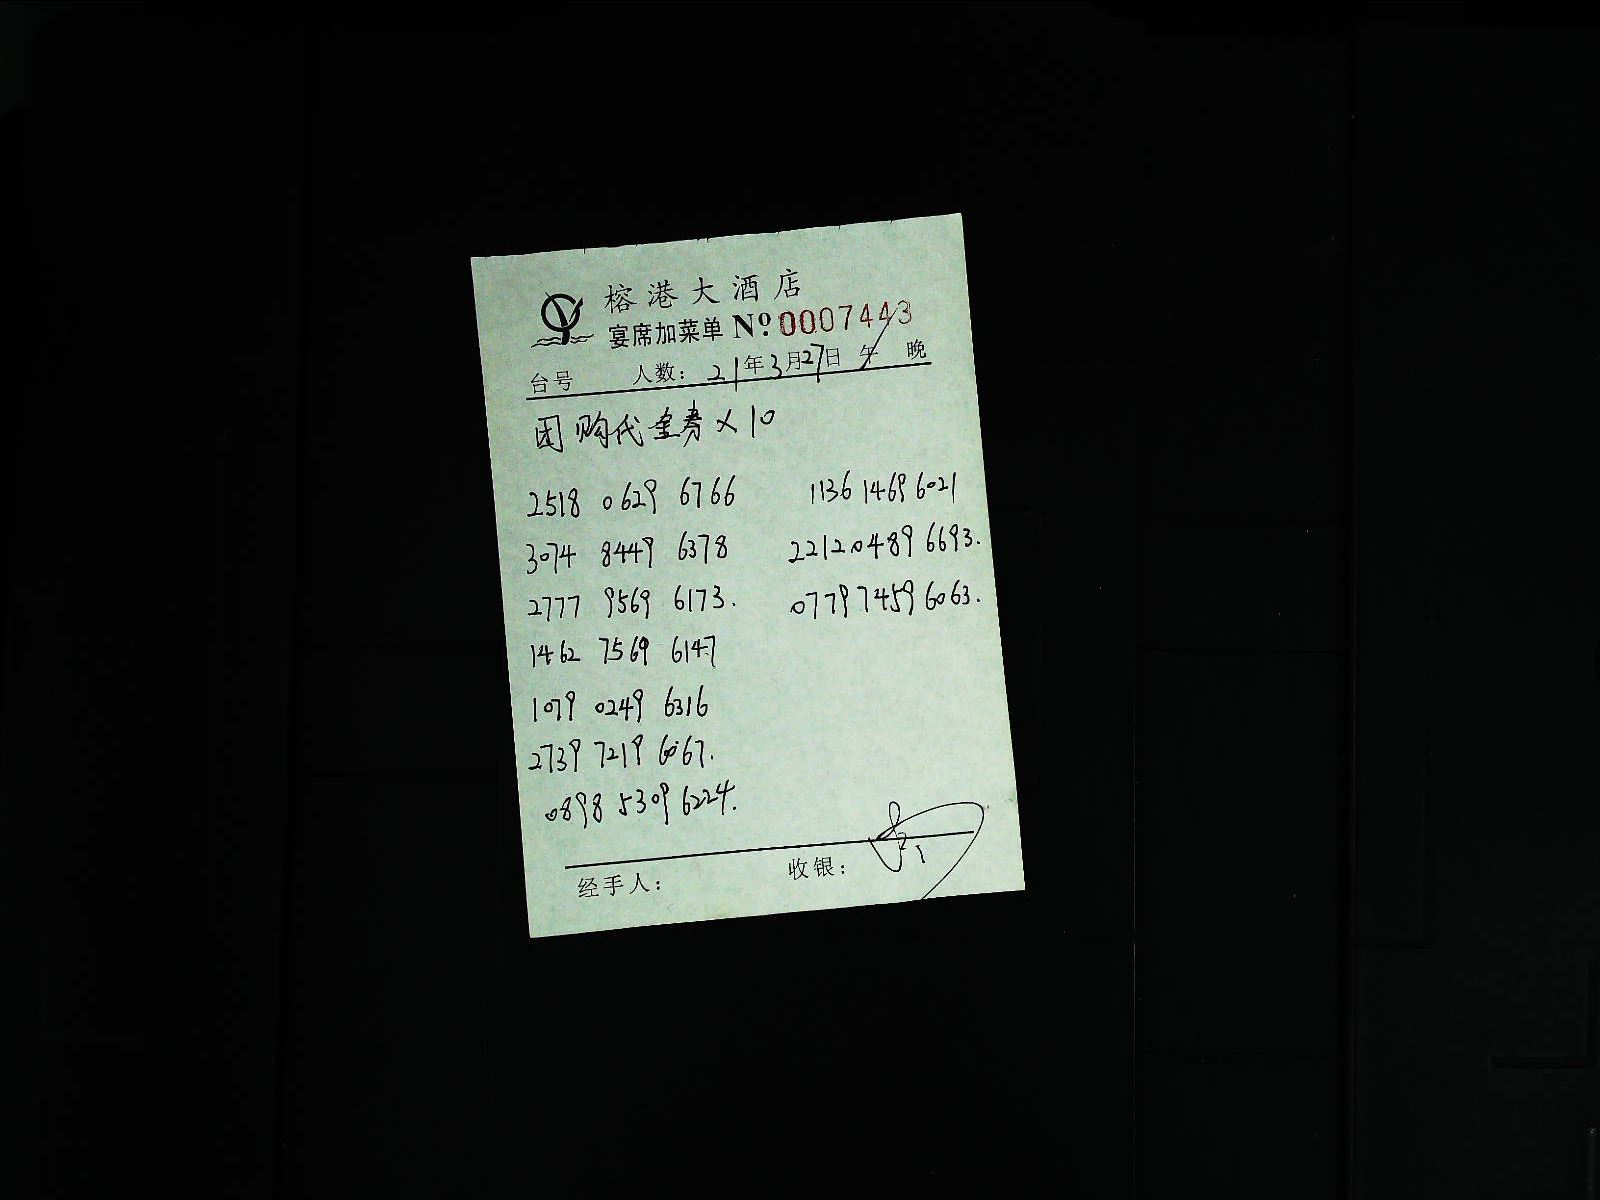 榕港大酒店
宴席加菜单 Nº 0007443
台号 人数: 21年3月27日 午 晚
团购代金券×10
2518 0629 6766
3074 8449 6378
2777 9569 6173.
1462 7569 6147
1079 0249 6316
2739 7219 6067.
0898 5309 6224.
1136 1469 6021
2212 0489 6693.
0779 7459 6063.
经手人: 收银: